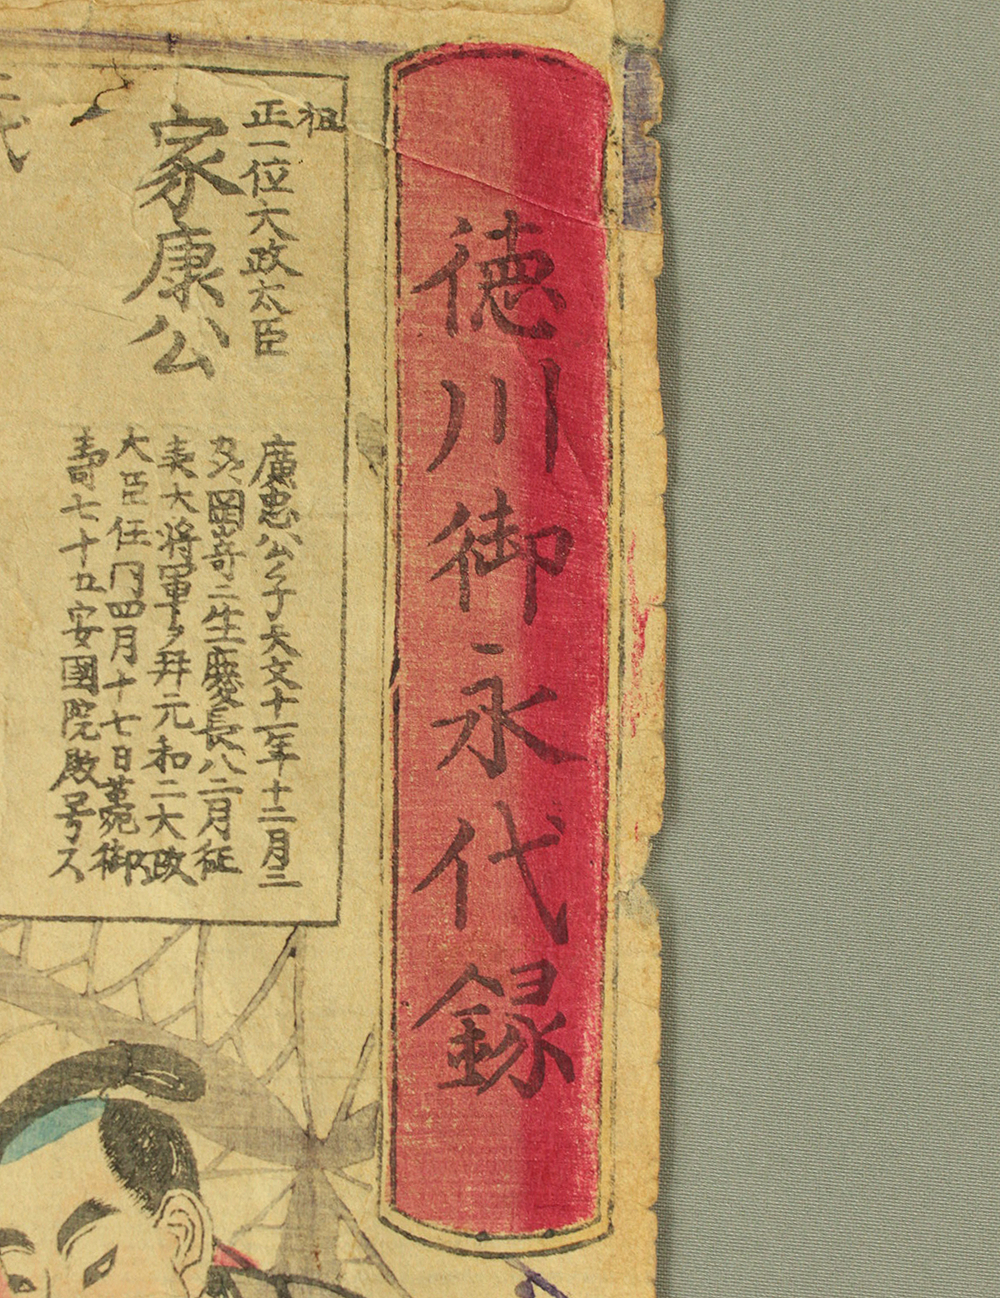 徳川御永代録
祖
正一位大政太臣
家康公
廣忠公ノ子天文十一年十二月三
岡嵜ニ生慶長八二月征
夷大将軍ヲ拜元和二大政
大臣任同四月十七日薨御
壽七十五安國院殿号ス
代